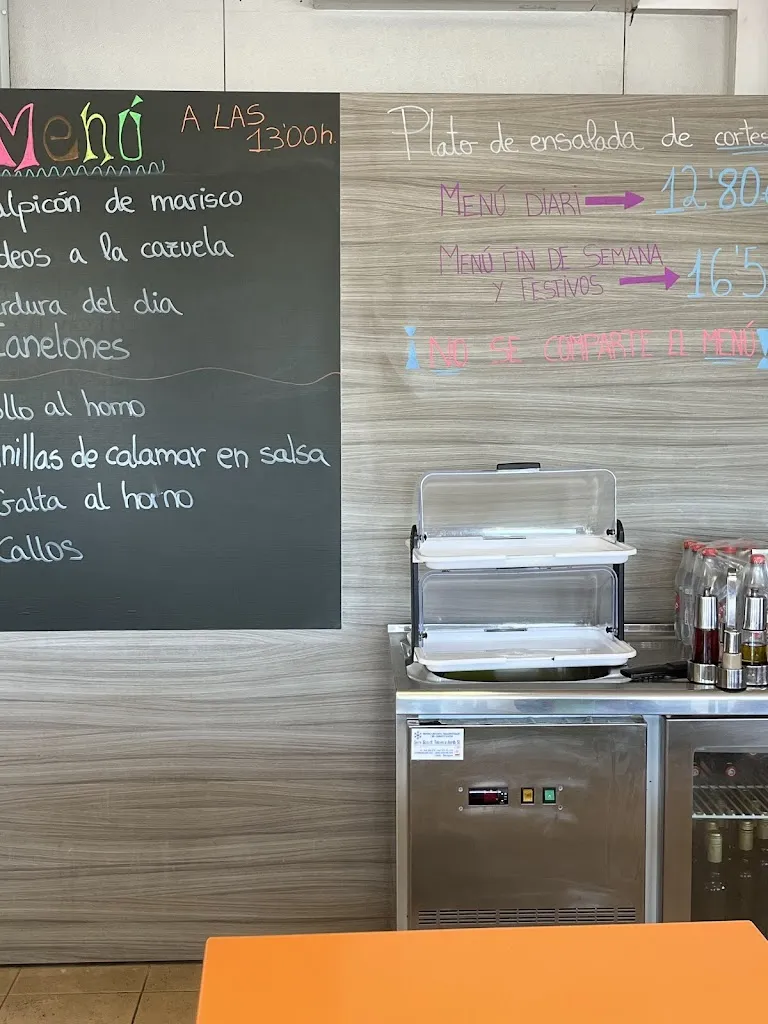 Menú A LAS 13'00h.
alpicón de marisco
deos a la cazuela
rdura del dia
Canelones
ollo al horno
nillas de calamar en salsa
Galta al horno
Callos
Plato de ensalada de cortes
MENÚ DIARI → 12'80€
MENÚ FIN DE SEMANA
Y FESTIVOS → 16'5
¡NO SE COMPARTE EL MENÚ!